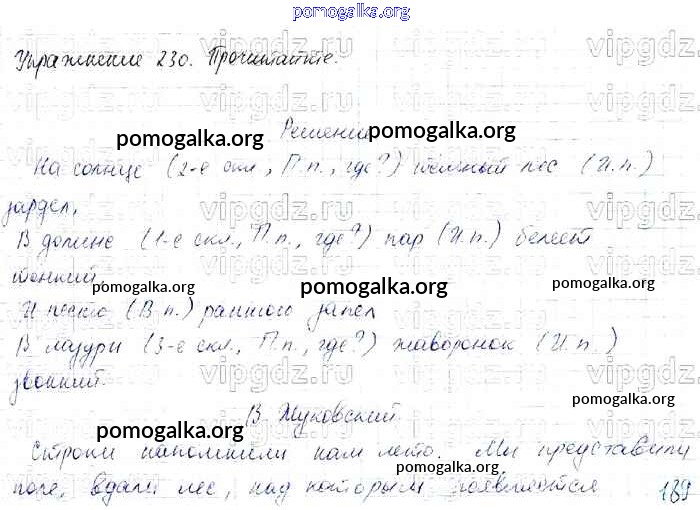 pomogalka.org
Упражнение 230. Прочитайте.
Решение
pomogalka.org pomogalka.org
На солнце (2-е скл., П.п., где?) темный лес (И.п.)
зардел,
В долине (1-е скл., П.п., где?) пар (И.п.) белеет
тонкий
pomogalka.org pomogalka.org pomogalka.org
И песню (В.п.) раннюю запел
В лазури (3-е скл., П.п., где?) жаворонок (И.п.)
звонкий.
pomogalka.org
В. Жуковский
pomogalka.org
Строки напомнили нам лето. Мы представили
pomogalka.org
поле, вдали лес, над которым появляется
189